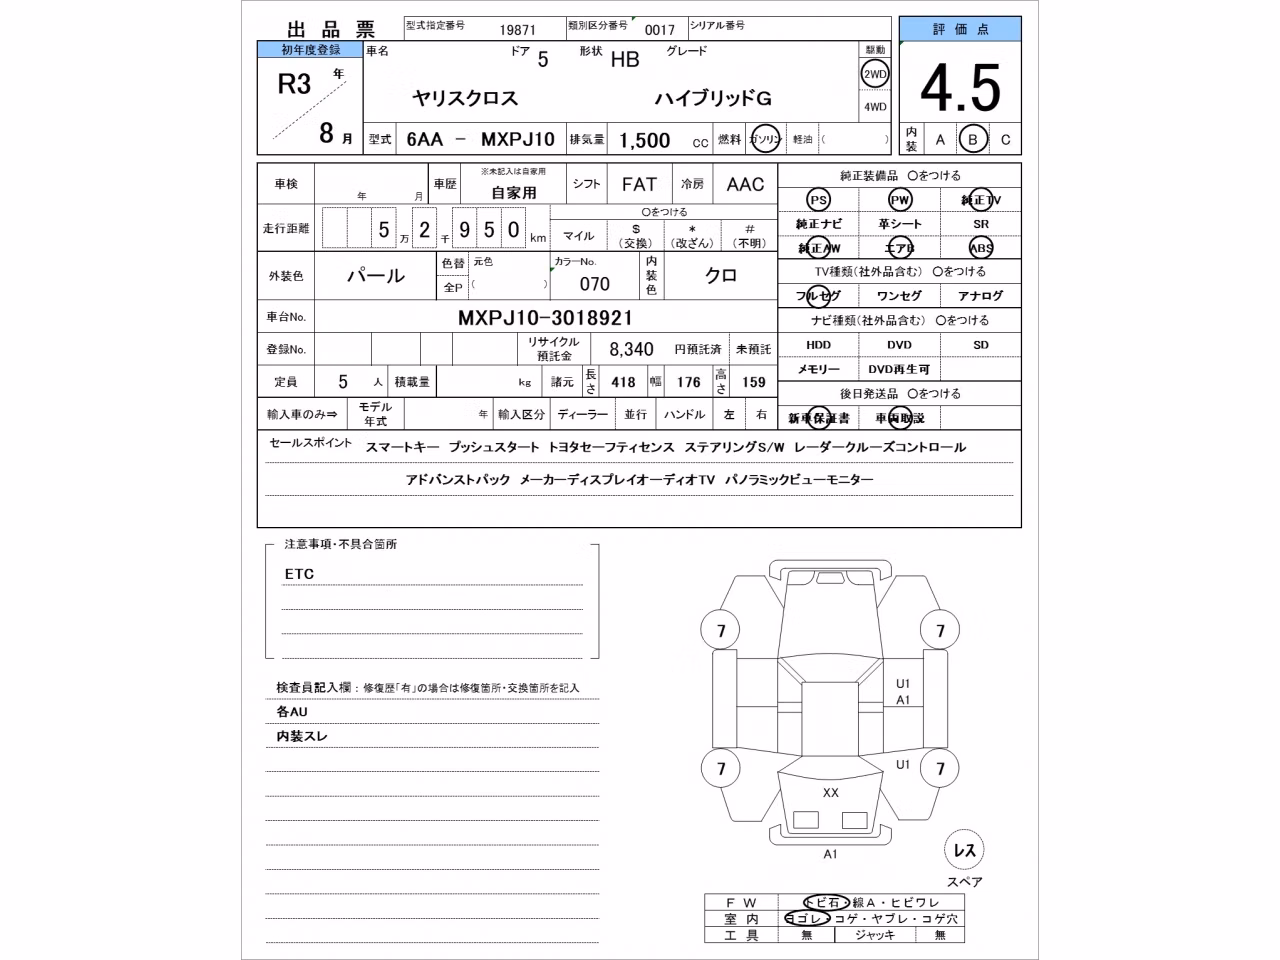 出品票 型式指定番号 19871 類別区分番号 0017 シリアル番号
評価点
初年度登録 車名 ドア 5 形状 HB グレード 駆動
R3 年 2WD
4.5
ヤリスクロス ハイブリッドG 4WD
8 月 型式 6AA － MXPJ10 排気量 1,500 CC 燃料 ガソリン 軽油 ( ) 内装 A B C
車検 年 月 車歴 ※未記入は自家用 自家用 シフト FAT 冷房 AAC
走行距離 5 万 2 千 9 5 0 km 〇をつける マイル $ (交換) * (改ざん) # (不明)
外装色 パール 色替 元色 全P ( ) カラーNo. 070 内装色 クロ
車台No. MXPJ10-3018921
登録No. リサイクル預託金 8,340 円預託済 未預託
定員 5 人 積載量 kg 諸元 長さ 418 幅 176 高さ 159
輸入車のみ⇒ モデル年式 年 輸入区分 ディーラー 並行 ハンドル 左 右
純正装備品 〇をつける
PS PW 純正TV
純正ナビ 革シート SR
純正AW エアB ABS
TV種類(社外品含む) 〇をつける
フルセグ ワンセグ アナログ
ナビ種類(社外品含む) 〇をつける
HDD DVD SD
メモリー DVD再生可
後日発送品 〇をつける
新車保証書 車両取説
セールスポイント スマートキー プッシュスタート トヨタセーフティセンス ステアリングS/W レーダークルーズコントロール
アドバンストパック メーカーディスプレイオーディオTV パノラミックビューモニター
注意事項・不具合箇所
ETC
検査員記入欄：修復歴「有」の場合は修復箇所・交換箇所を記入
各AU
内装スレ
7 7
U1
A1
7 U1 7
XX
A1
レス
スペア
F W トビ石・線A・ヒビワレ
室内 ヨゴレ・コゲ・ヤブレ・コゲ穴
工具 無 ジャッキ 無